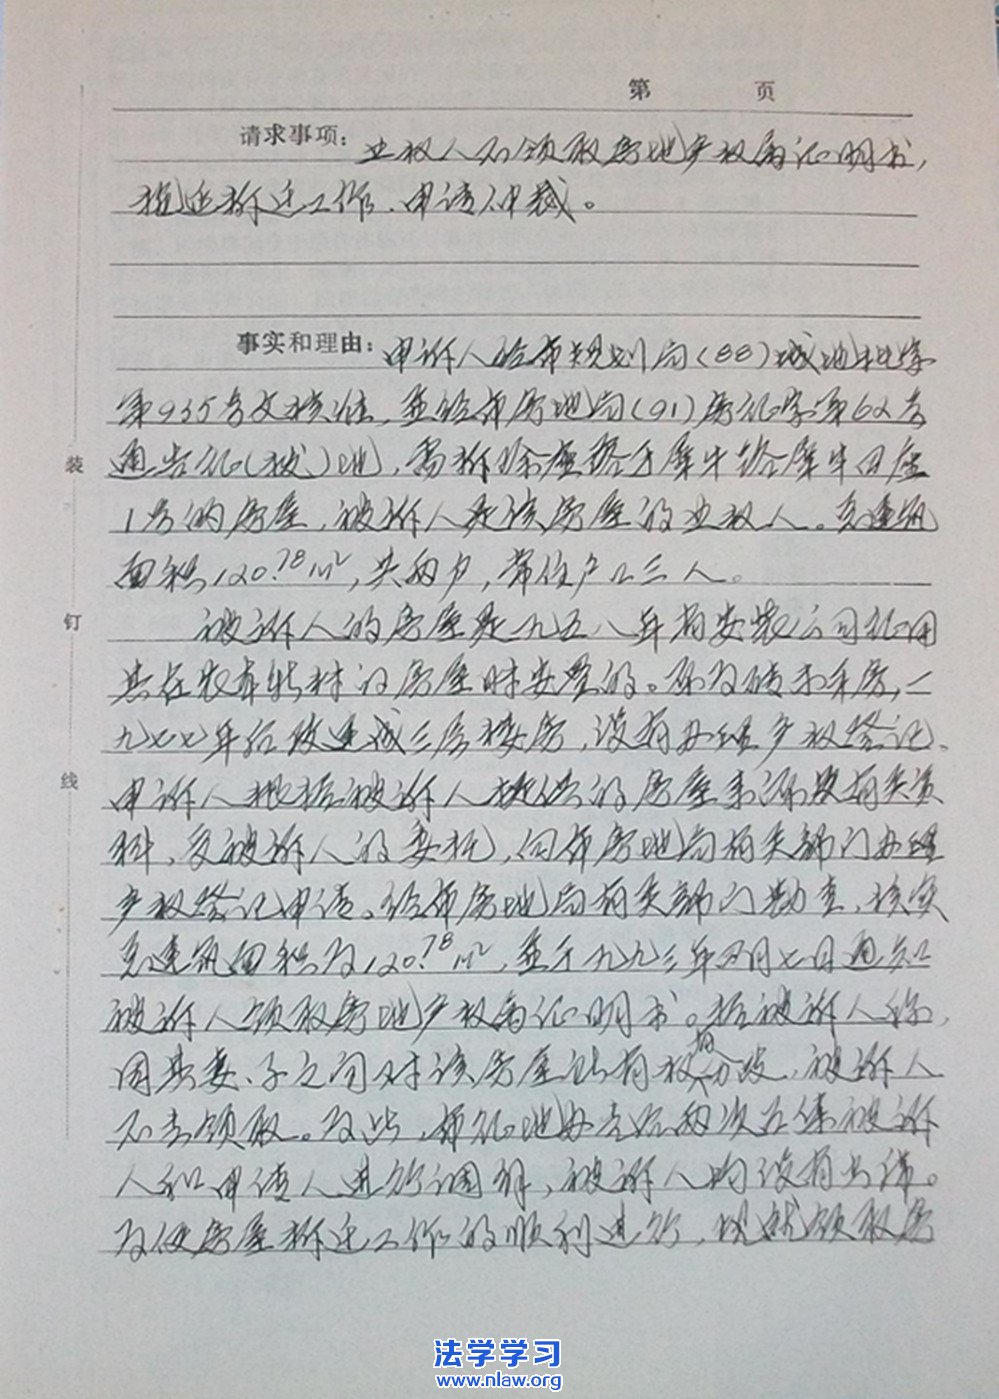 第 页
请求事项：业权人不领取房地产权属证明书，
拖延拆迁工作，申请仲裁。
事实和理由：申诉人经市规划局(88)城地批字
第935号文核准，并经市房地局(91)房征字第62号
通告征(拨)地，需拆除
1号的房屋，被诉人是该房屋的业权人。其建筑
面积120.78m²，共两户，常住户口三人。
装
钉
线
被诉人的房屋是一九五八年前安装公司征用
其在 村的房屋时安置的。原为砖木平房，一
九七七年后改建成三层楼房，没有办理产权登记。
申诉人根据被诉人提供的房屋来源及有关资
料，受被诉人的委托，向市房地局有关部门办理
产权登记申请。经市房地局有关部门勘查，核实
其建筑面积为120.78m²，并于一九九三年四月七日通知
被诉人领取房地产权属证明书。据被诉人称，
因其妻、子之间对该房屋占有权有分歧，被诉人
不去领取。为此，市征地办先后两次召集被诉
人和申请人进行调解，被诉人均没有出席。
为使房屋拆迁工作的顺利进行，现就领取房
法学学习
www.nlaw.org